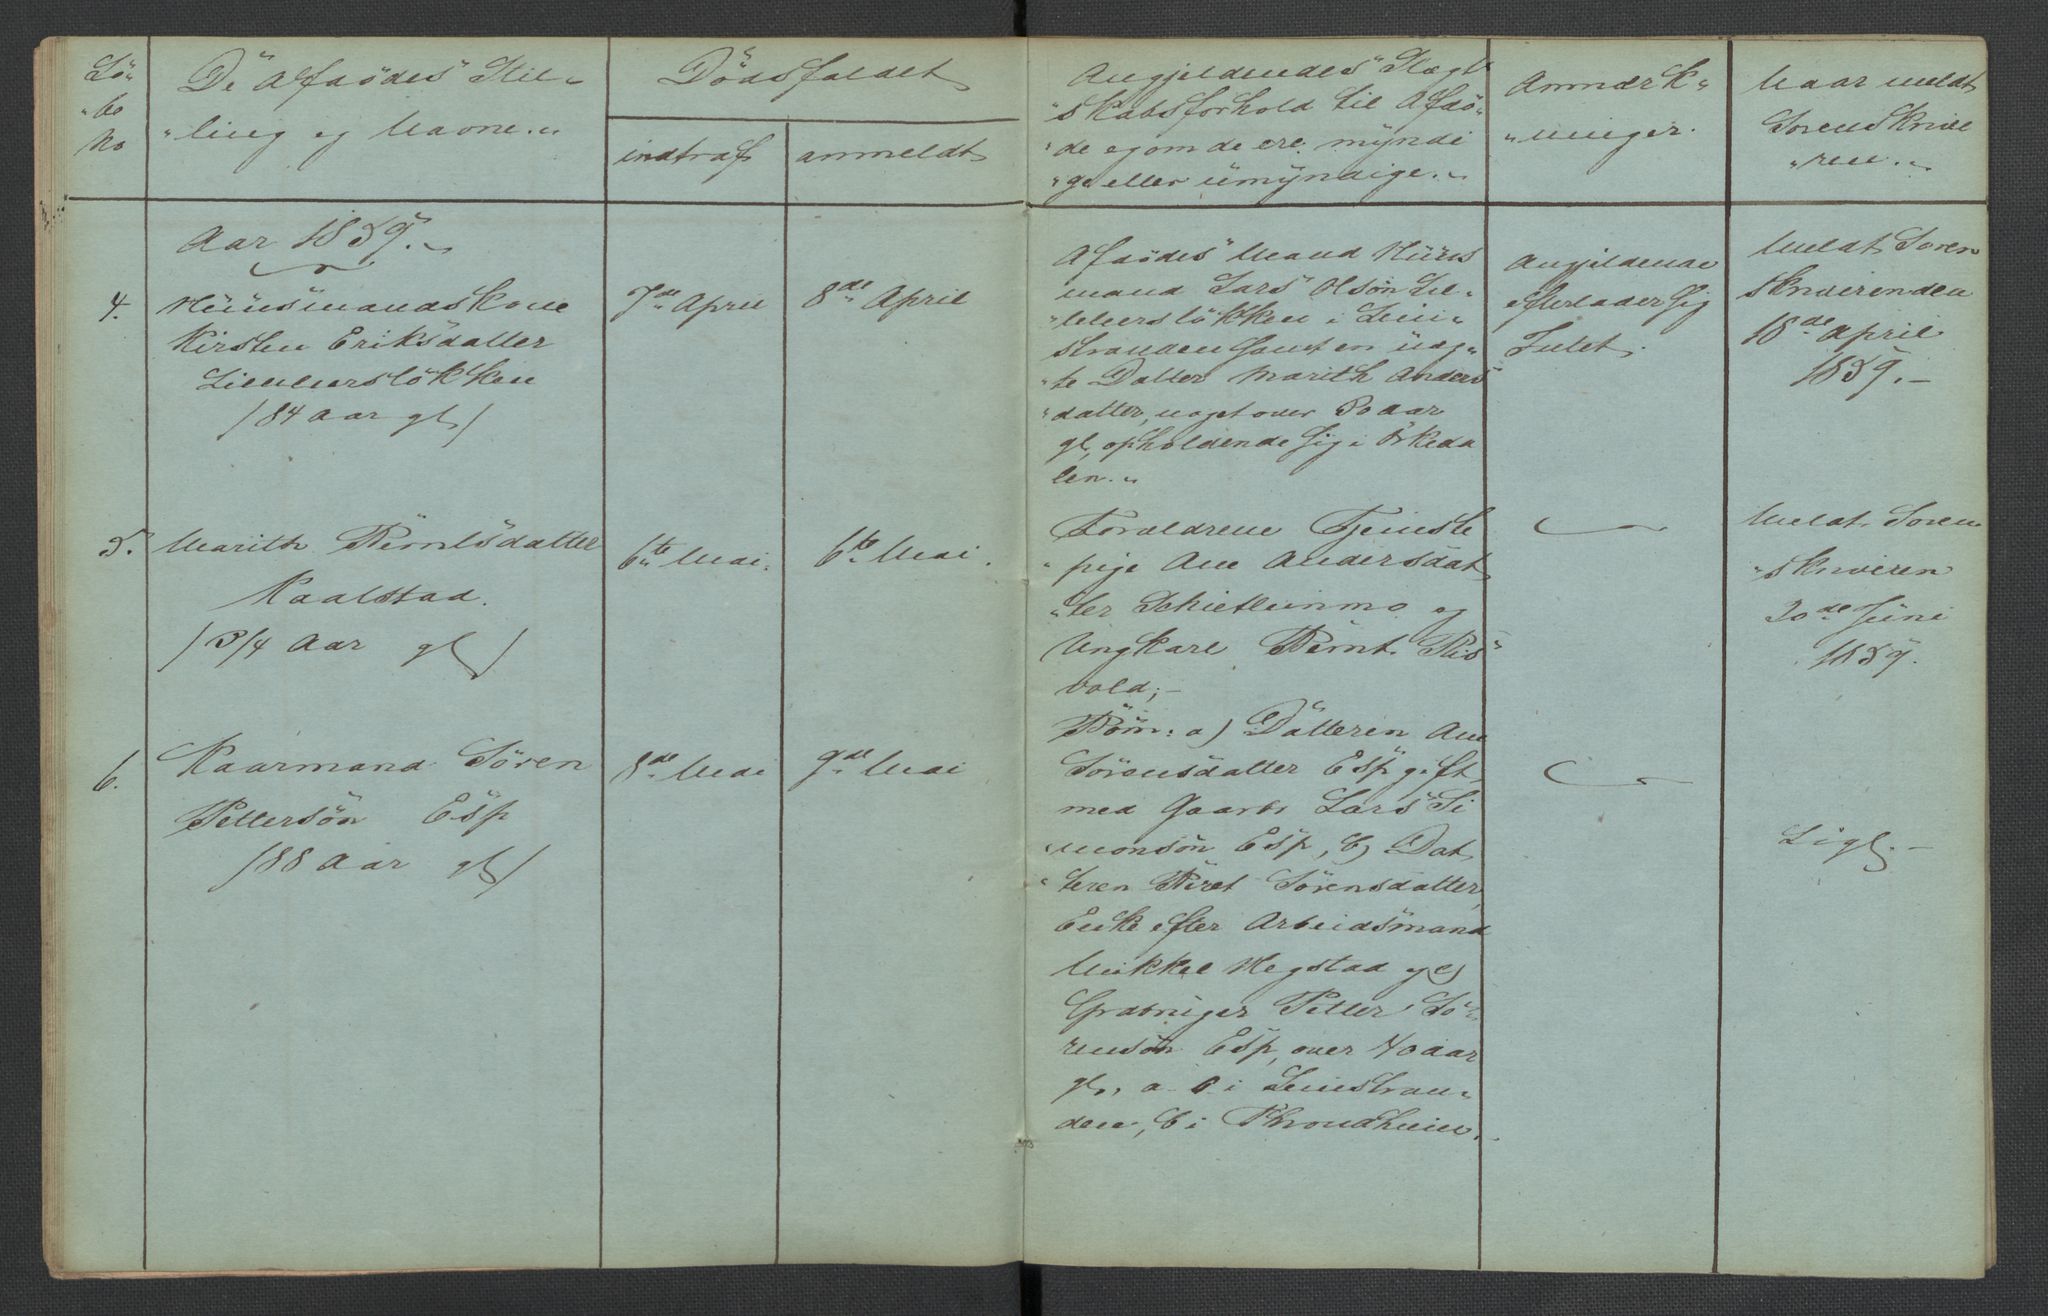 Lö-
"be
No
De Afdödes Stil-
"ling og Navne."
Dödsfaldet
indtraf
anmeldt
Angjeldendes Slægt
"skabsforhold til Afdö-
"de og om de ere myndi
"ge eller umyndige."
Anmærk-
"ninger.
Naar meldt
Sorenskrive
"ren."
Aar 1859."
4.
Huusmandskone
Kirsten Eriksdatter
Lemmerslökken
/84 Aar gl/
7de April
8de April
Afdödes Mand Huus
mand Lars Olsön Le-
"mmerslökken i Lein-
stranden samt en uæg-
"te Datter Marith Anders
"datter, noget over 50 aar
gl, opholdende sig i Örkeda
len."
Angjeldende
efterlader sig
Intet.
Meldt Soren
skriverenden
18de April
1859.-
5.
Marith Berntsdatter
Kaalstad.
/3/4 Aar gl/
6te Mai.
6te Mai.
Foraldrene Tjeneste
"pige Ane Andersdat
"ter Schietleinmo og
Ungkarl Bernt Ris
vold;-
Meldt Soren
"skriveren
20de Juni
1859.
6.
Kaarmand Sören
Pettersön Esp
/88 Aar gl/
8de Mai
9de Mai
Börn: a) Datteren Ane
Sörensdatter Esp gift
med Gaardb Lars Si
monsön Esp, b) Dat
"teren Beret Sörensdatter,
Enke efter Arbeidsmand
Mikkel Hegstad og c)
Gaardbruger Petter Sö-
rensön Esp, over 40 aar
gl, a. c i Leinstran-
den, b i Throndhiem.
Ligl.-